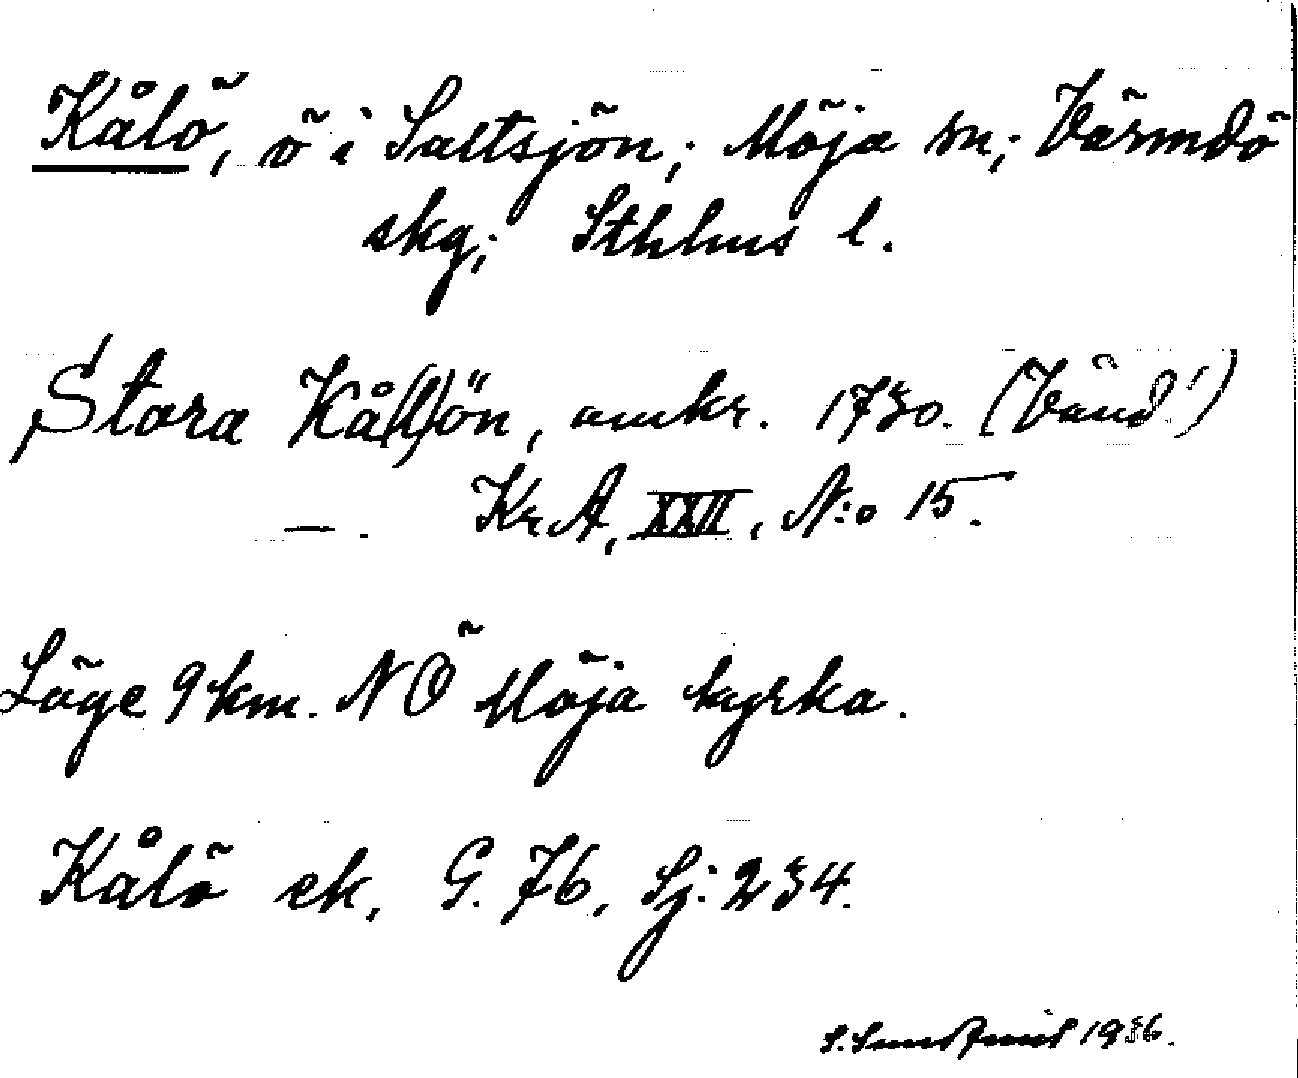 Kålö, ö i Saltsjön; Möja sn; Värmdö
skg; Sthlms l.
Stora Kå(l)ön, omkr. 1730. (Vänd!)
— . KrA, XXII, N:o 15.
Läge 9 km. NÖ Möja kyrka.
Kålö ek, G. 76, Sj: 234.
S. 1936.